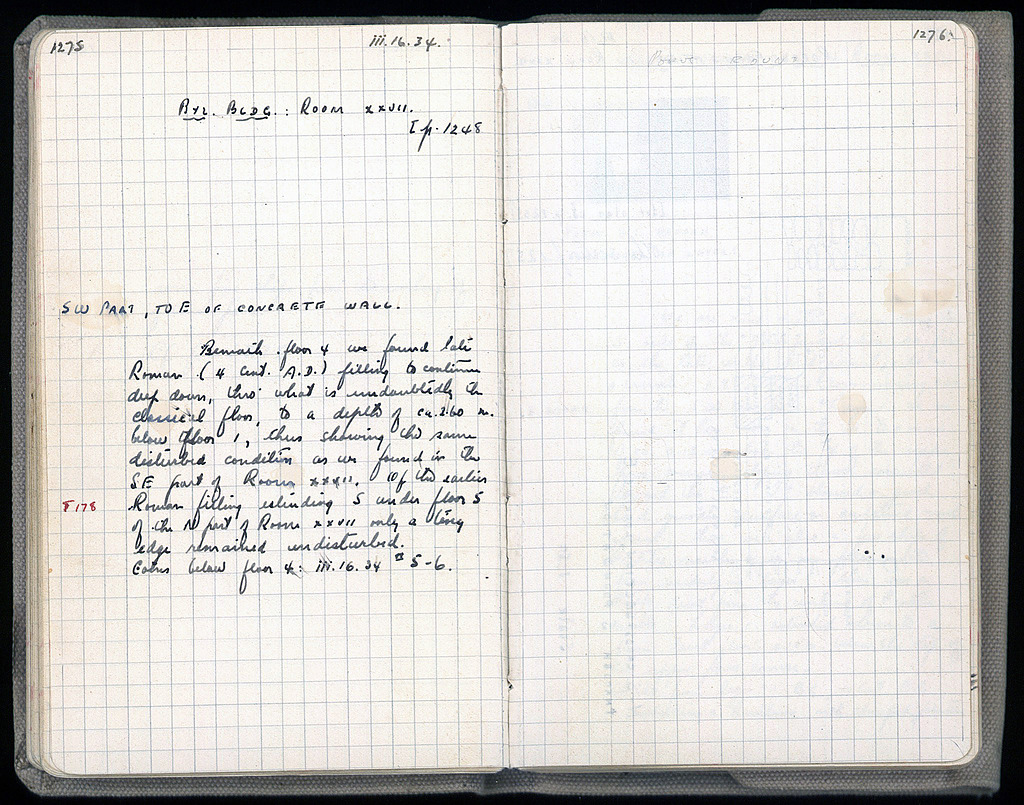 1275
iii.16.34.
Byz. Bldg.: Room xxvii.
[p. 1248
SW PART, TO E OF CONCRETE WALL.
Beneath floor 4 we found late
Roman (4 cent. A.D.) filling to continue
deep down, thro' what is undoubtedly the
classical floor, to a depth of ca. 2.60 m.
below floor 1, thus showing the same
disturbed condition as we found in the
SE part of Room xxxii. Of the earlier
T 178
Roman filling extending S under floor 5
of the N part of Room xxvii only a tiny
edge remained undisturbed.
Coins below floor 4: iii.16.34 # 5-6.
1276.